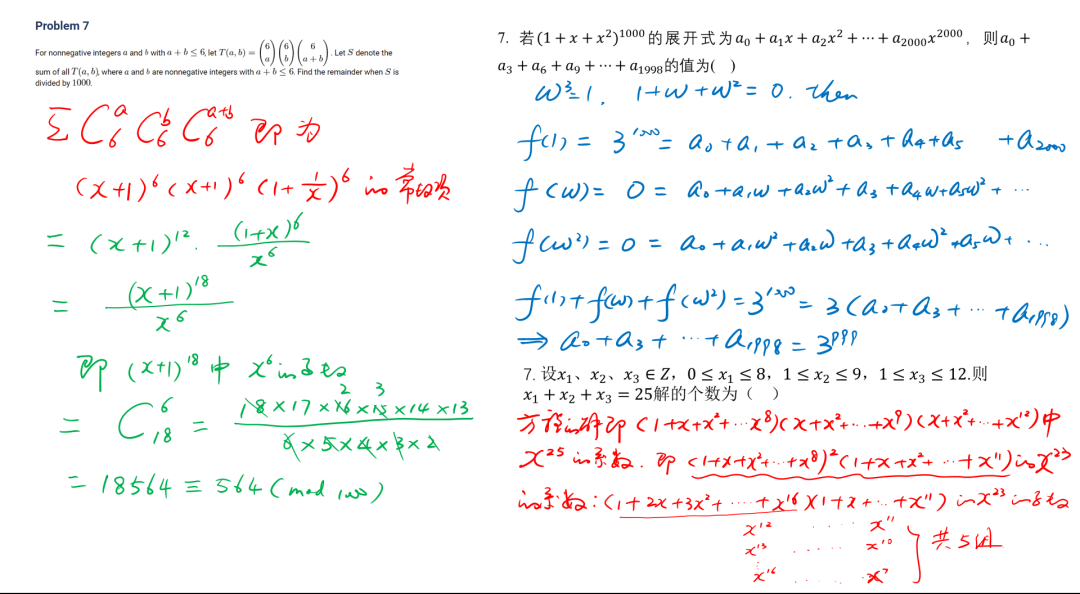 Problem 7
For nonnegative integers a and b with a + b ≤ 6, let T(a, b) = (6 a)(6 b)(6 a + b). Let S denote the
sum of all T(a, b), where a and b are nonnegative integers with a + b ≤ 6. Find the remainder when S is
divided by 1000.
Σ C₆ᵃ C₆ᵇ C₆ᵃ⁺ᵇ 即为
(x+1)⁶ (x+1)⁶ (1+1/x)⁶ 的常数项
= (x+1)¹² · (1+x)⁶/x⁶
= (x+1)¹⁸/x⁶
即 (x+1)¹⁸ 中 x⁶ 的系数
= C₁₈⁶ = 18×17×16×15×14×13 / 6×5×4×3×2
2 3
= 18564 ≡ 564 (mod 1000)
7. 若(1 + x + x²)¹⁰⁰⁰的展开式为a₀ + a₁x + a₂x² + ⋯ + a₂₀₀₀x²⁰⁰⁰， 则a₀ +
a₃ + a₆ + a₉ + ⋯ + a₁₉₉₈的值为( )
ω³=1, 1+ω+ω² = 0. then
f(1) = 3¹⁰⁰⁰ = a₀ + a₁ + a₂ + a₃ + a₄ + a₅ + a₂₀₀₀
f(ω) = 0 = a₀ + a₁ω + a₂ω² + a₃ + a₄ω + a₅ω² + ⋯
f(ω²) = 0 = a₀ + a₁ω² + a₂ω + a₃ + a₄ω² + a₅ω + ⋯
f(1) + f(ω) + f(ω²) = 3¹⁰⁰⁰ = 3(a₀ + a₃ + ⋯ + a₁₉₉₈)
⇒ a₀ + a₃ + ⋯ + a₁₉₉₈ = 3⁹⁹⁹
7. 设x₁、x₂、x₃ ∈ Z，0 ≤ x₁ ≤ 8，1 ≤ x₂ ≤ 9，1 ≤ x₃ ≤ 12.则
x₁ + x₂ + x₃ = 25解的个数为（ ）
方程的解即 (1+x+x²+⋯x⁸)(x+x²+⋯+x⁹)(x+x²+⋯+x¹²)中
x²⁵ 的系数. 即 (1+x+x²+⋯+x⁸)²(1+x+x²+⋯+x¹¹)的x²³
的系数: (1+2x+3x²+⋯+x¹⁶)(1+x+⋯+x¹¹) 的x²³的系数
x¹² ⋯ x¹¹
x¹³ ⋯ x¹⁰ 共5组
⋮
x¹⁶ ⋯ x⁷